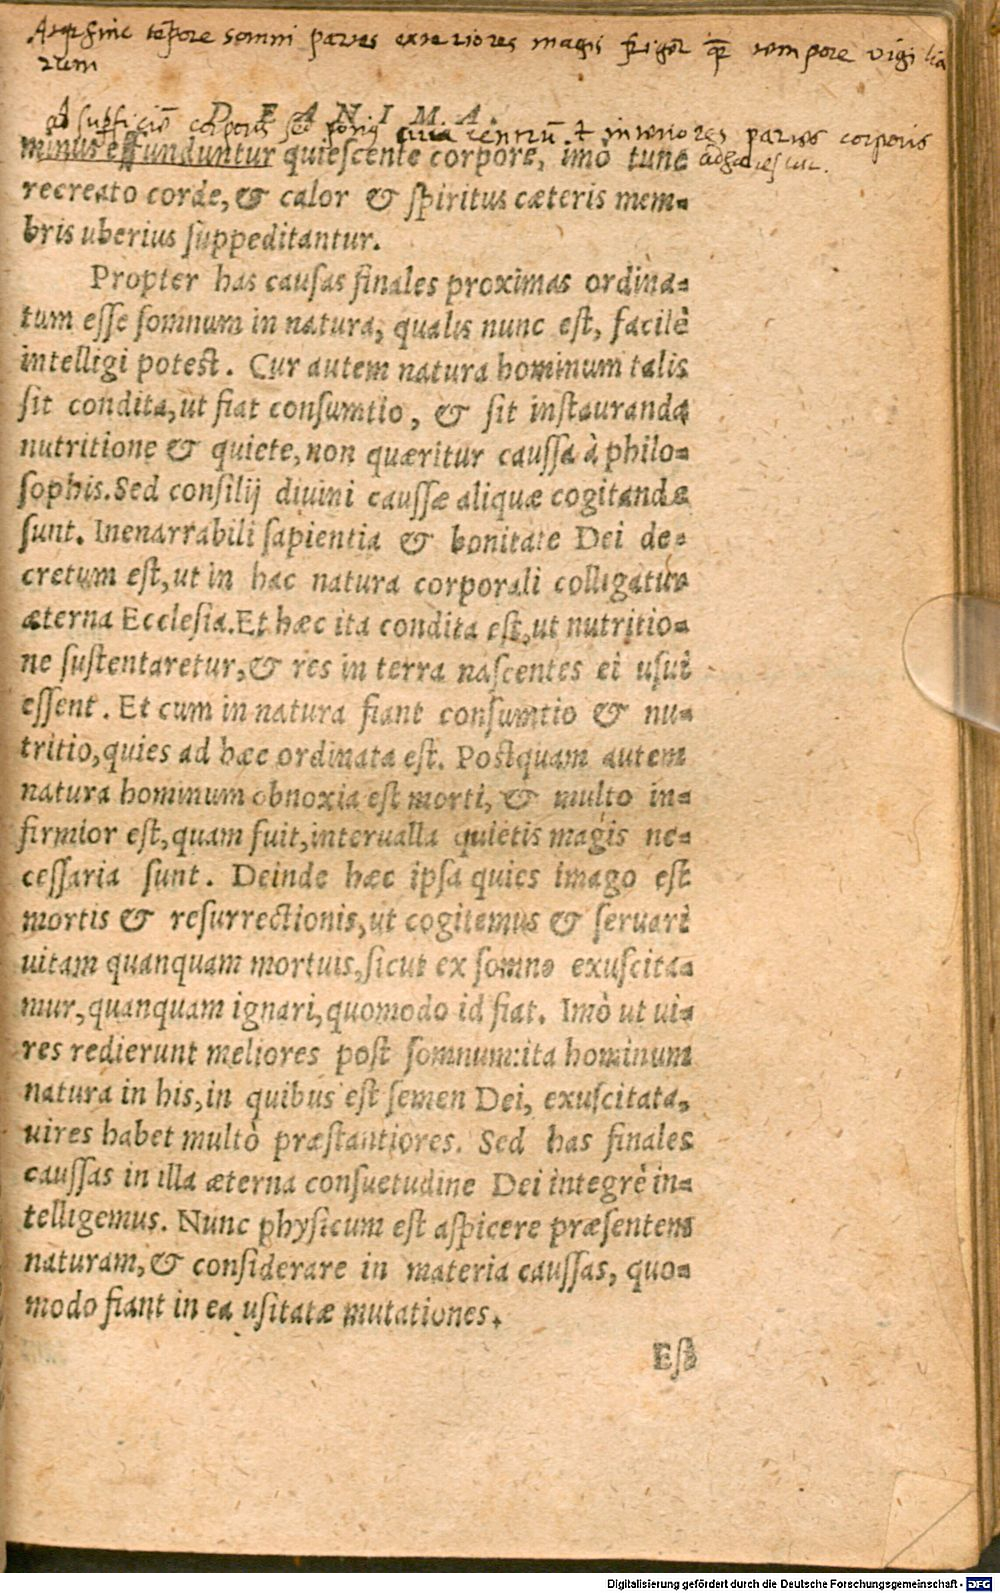 Atque hinc tempore somni partes exteriores magis frigent quam tempore vigilia
rum
D E A N I M A.
ad superficiem corporis sed potius circa centrum et interiores partes corporis
minus effunduntur quiescente corpore, imò tunc
recreato corde, & calor & spiritus cæteris mem-
bris uberius suppeditantur.
Propter has causas finales proximas ordina-
tum esse somnum in natura, qualis nunc est, facilè
intelligi potest. Cur autem natura hominum talis
sit condita, ut fiat consumtio, & sit instauranda
nutritione & quiete, non quæritur caussa à philo-
sophis. Sed consilij diuini caussæ aliquæ cogitandæ
sunt. Inenarrabili sapientia & bonitate Dei de-
cretum est, ut in hac natura corporali colligatur
æterna Ecclesia. Et hæc ita condita est, ut nutritio-
ne sustentaretur, & res in terra nascentes ei usui
essent. Et cum in natura fiant consumtio & nu-
tritio, quies ad hæc ordinata est. Postquam autem
natura hominum obnoxia est morti, & multo in-
firmior est, quam fuit, interualla quietis magis ne-
cessaria sunt. Deinde hæc ipsa quies imago est
mortis & resurrectionis, ut cogitemus & seruari
uitam quanquam mortuis, sicut ex somno exuscita-
mur, quanquam ignari, quomodo id fiat. Imò ut ui-
res redierunt meliores post somnum: ita hominum
natura in his, in quibus est semen Dei, exuscitata,
uires habet multò præstantiores. Sed has finales
caussas in illa æterna consuetudine Dei integrè in-
telligemus. Nunc physicum est aspicere præsentem
naturam, & considerare in materia caussas, quo-
modo fiant in ea usitatæ mutationes.
Est
Digitalisierung gefördert durch die Deutsche Forschungsgemeinschaft - DFG